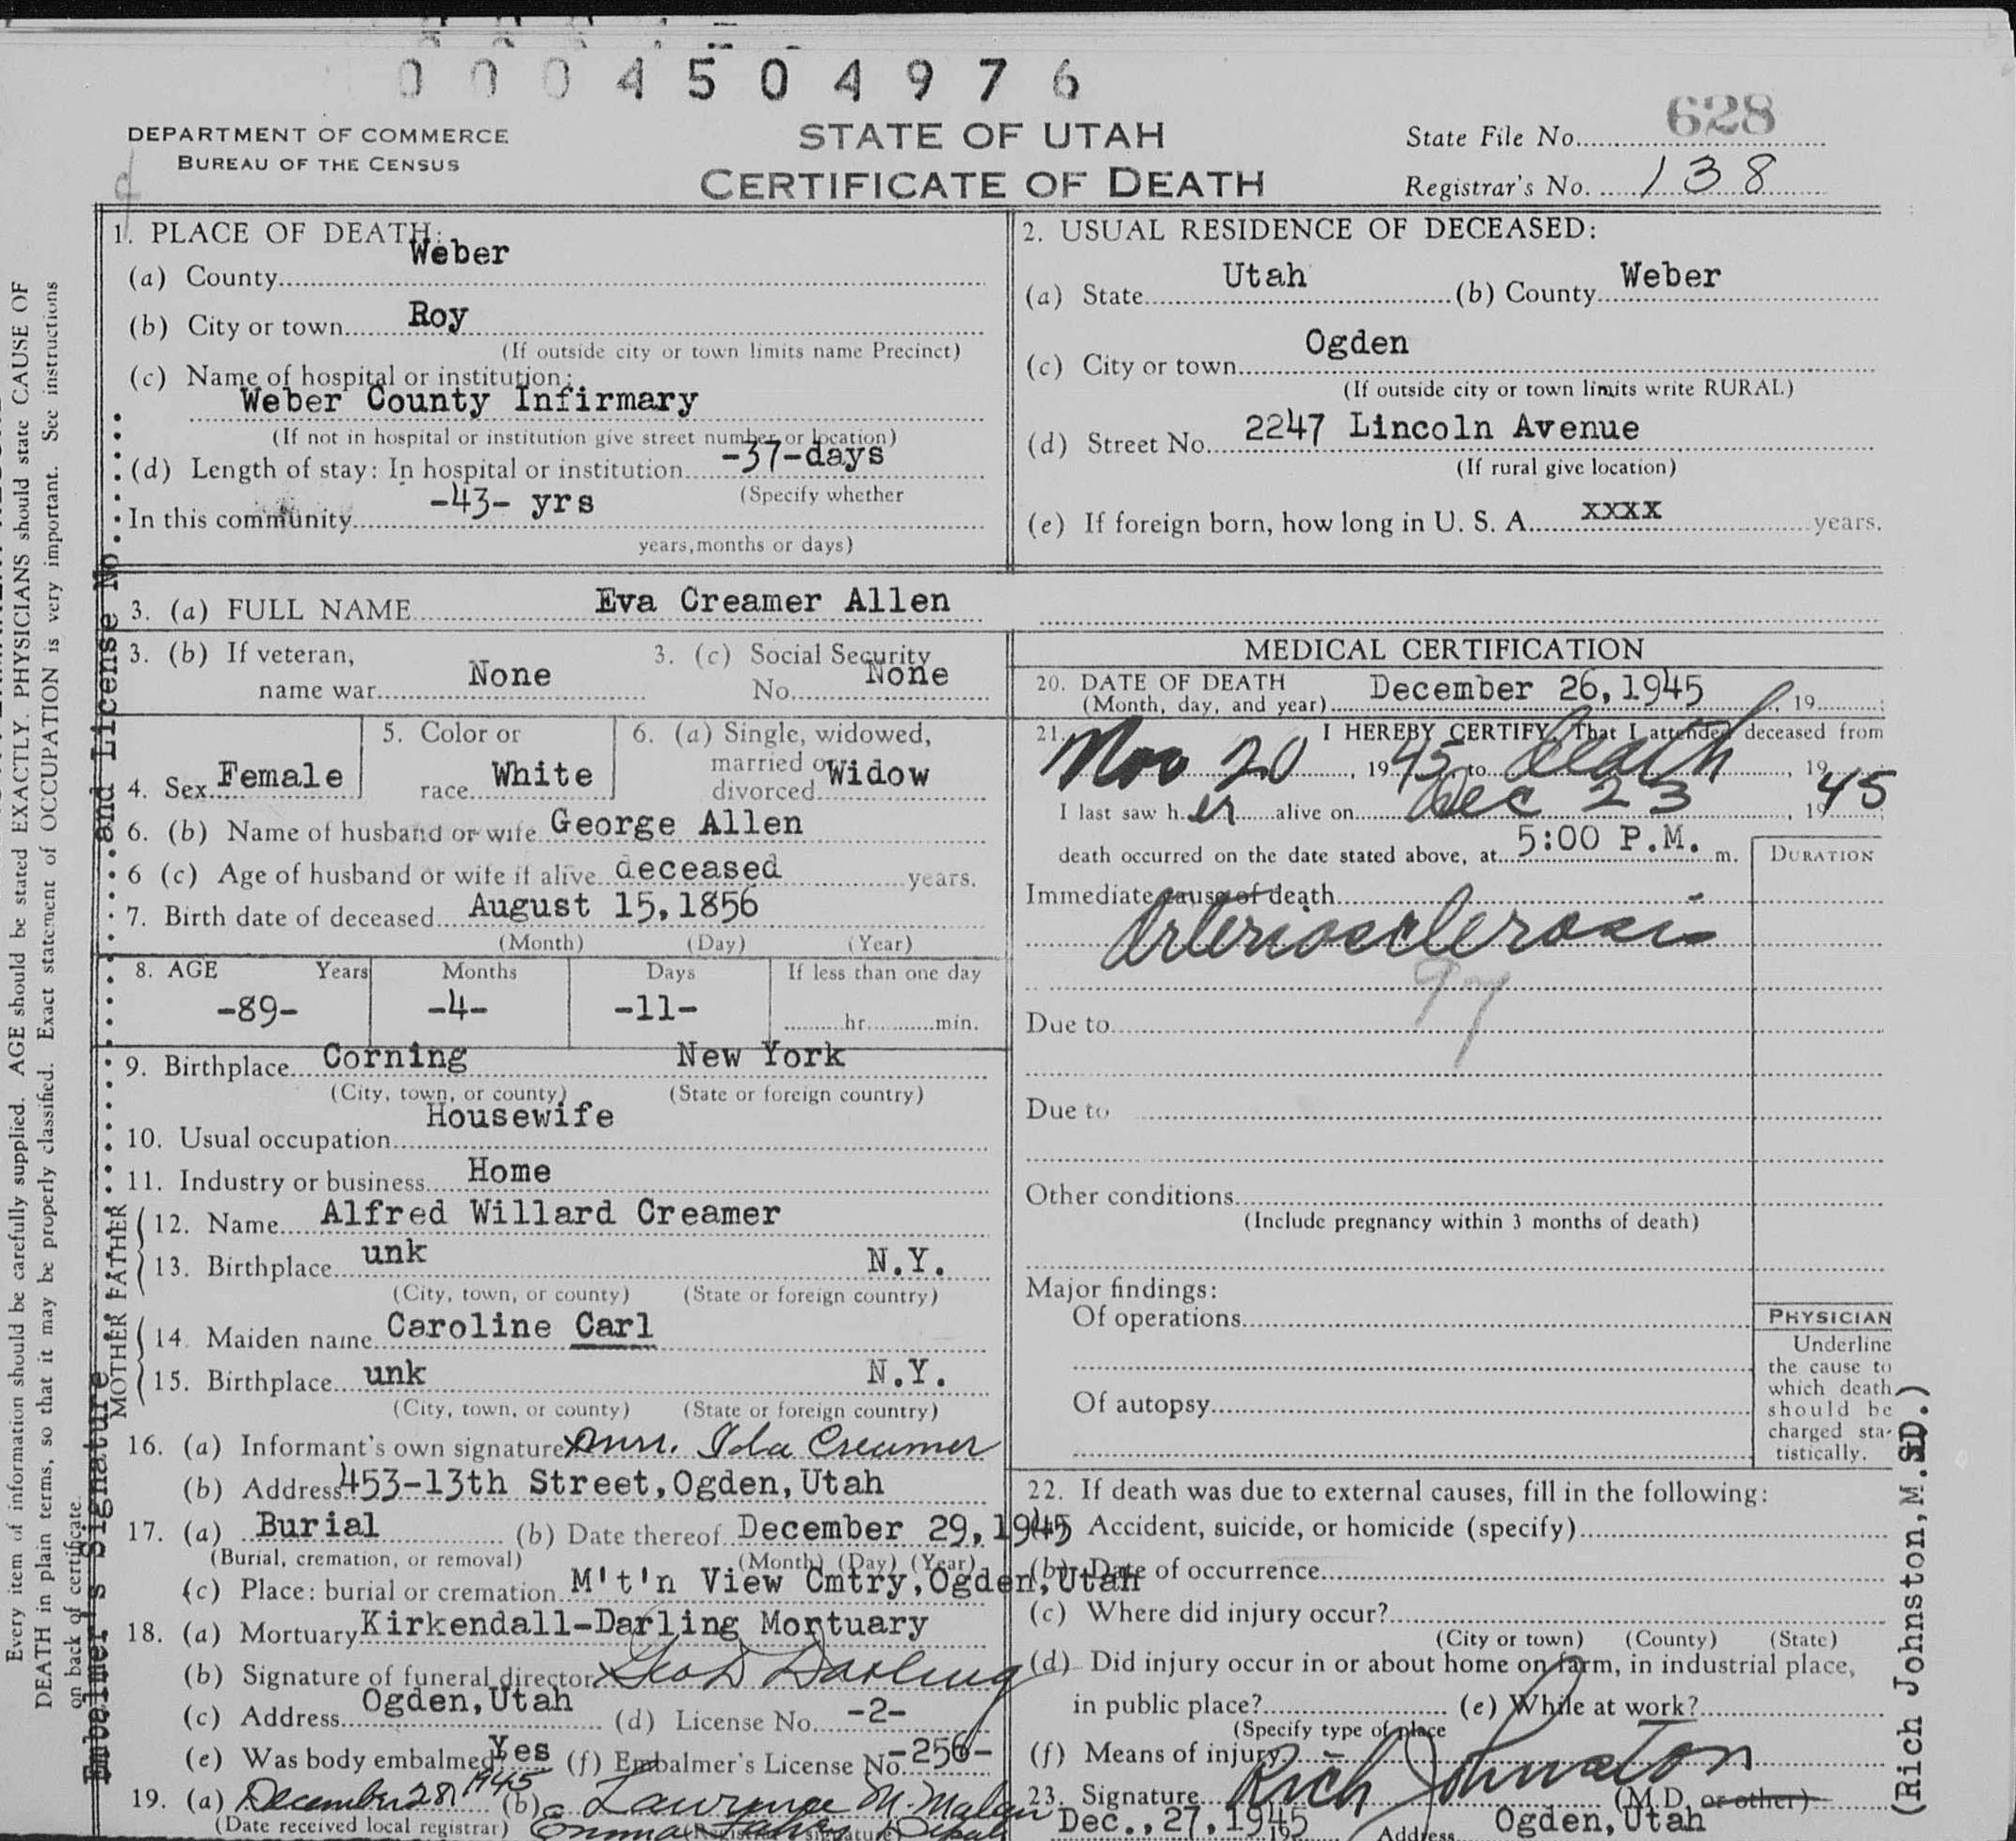 0 0 0 4 5 0 4 9 7 6
DEPARTMENT OF COMMERCE
BUREAU OF THE CENSUS
STATE OF UTAH
CERTIFICATE OF DEATH
State File No. 628
Registrar's No. 138
1. PLACE OF DEATH:
(a) County Weber
(b) City or town Roy
(If outside city or town limits name Precinct)
(c) Name of hospital or institution:
Weber County Infirmary
(If not in hospital or institution give street number or location)
(d) Length of stay: In hospital or institution -37-days
(Specify whether
In this community -43- yrs
years, months or days)
2. USUAL RESIDENCE OF DECEASED:
(a) State Utah (b) County Weber
(c) City or town Ogden
(If outside city or town limits write RURAL)
(d) Street No. 2247 Lincoln Avenue
(If rural give location)
(e) If foreign born, how long in U. S. A. xxxx years.
3. (a) FULL NAME Eva Creamer Allen
3. (b) If veteran,
name war None
3. (c) Social Security
No. None
4. Sex Female
5. Color or
race White
6. (a) Single, widowed,
married or
divorced Widow
6. (b) Name of husband or wife George Allen
6 (c) Age of husband or wife if alive deceased years.
7. Birth date of deceased August 15, 1856
(Month) (Day) (Year)
8. AGE Years Months Days If less than one day
-89- -4- -11- hr. min.
9. Birthplace Corning New York
(City, town, or county) (State or foreign country)
10. Usual occupation Housewife
11. Industry or business Home
FATHER
12. Name Alfred Willard Creamer
13. Birthplace unk N.Y.
(City, town, or county) (State or foreign country)
MOTHER
14. Maiden name Caroline Carl
15. Birthplace unk N.Y.
(City, town, or county) (State or foreign country)
16. (a) Informant's own signature Mrs. Ida Creamer
(b) Address 453-13th Street, Ogden, Utah
17. (a) Burial (b) Date thereof December 29, 1945
(Burial, cremation, or removal) (Month) (Day) (Year)
(c) Place: burial or cremation M't'n View Cmtry, Ogden, Utah
18. (a) Mortuary Kirkendall-Darling Mortuary
(b) Signature of funeral director Geo D Darling
(c) Address Ogden, Utah (d) License No. -2-
(e) Was body embalmed Yes (f) Embalmer's License No. -256-
19. (a) December 28, 1945 (b) Lawrence M. Malan
(Date received local registrar) (Registrar's signature)
Emma
MEDICAL CERTIFICATION
20. DATE OF DEATH
(Month, day, and year) December 26, 1945, 19
21. I HEREBY CERTIFY, That I attended deceased from
Nov 20, 1945, to Death, 1945
I last saw her alive on Dec 23, 1945;
death occurred on the date stated above, at 5:00 P.M. m.
DURATION
Immediate cause of death
Arteriosclerosis
97
Due to
Due to
Other conditions
(Include pregnancy within 3 months of death)
Major findings:
Of operations
Of autopsy
PHYSICIAN
Underline
the cause to
which death
should be
charged sta-
tistically.
22. If death was due to external causes, fill in the following:
Accident, suicide, or homicide (specify)
(b) Date of occurrence
(c) Where did injury occur?
(City or town) (County) (State)
(d) Did injury occur in or about home on farm, in industrial place,
in public place? (e) While at work?
(Specify type of place
(f) Means of injury
23. Signature Rich Johnston (M.D. or other)
Dec., 27, 1945 Address Ogden, Utah
(Rich Johnston, M.D.)
Every item of information should be carefully supplied. AGE should be stated EXACTLY. PHYSICIANS should state CAUSE OF
DEATH in plain terms, so that it may be properly classified. Exact statement of OCCUPATION is very important. See instructions
on back of certificate.
Embalmer's Signature and License No